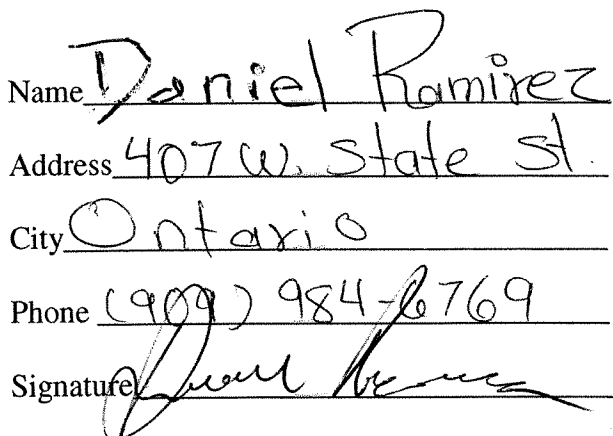 Name Daniel Ramirez
Address 407 W. State St.
City Ontario
Phone (909) 984-6769
Signature